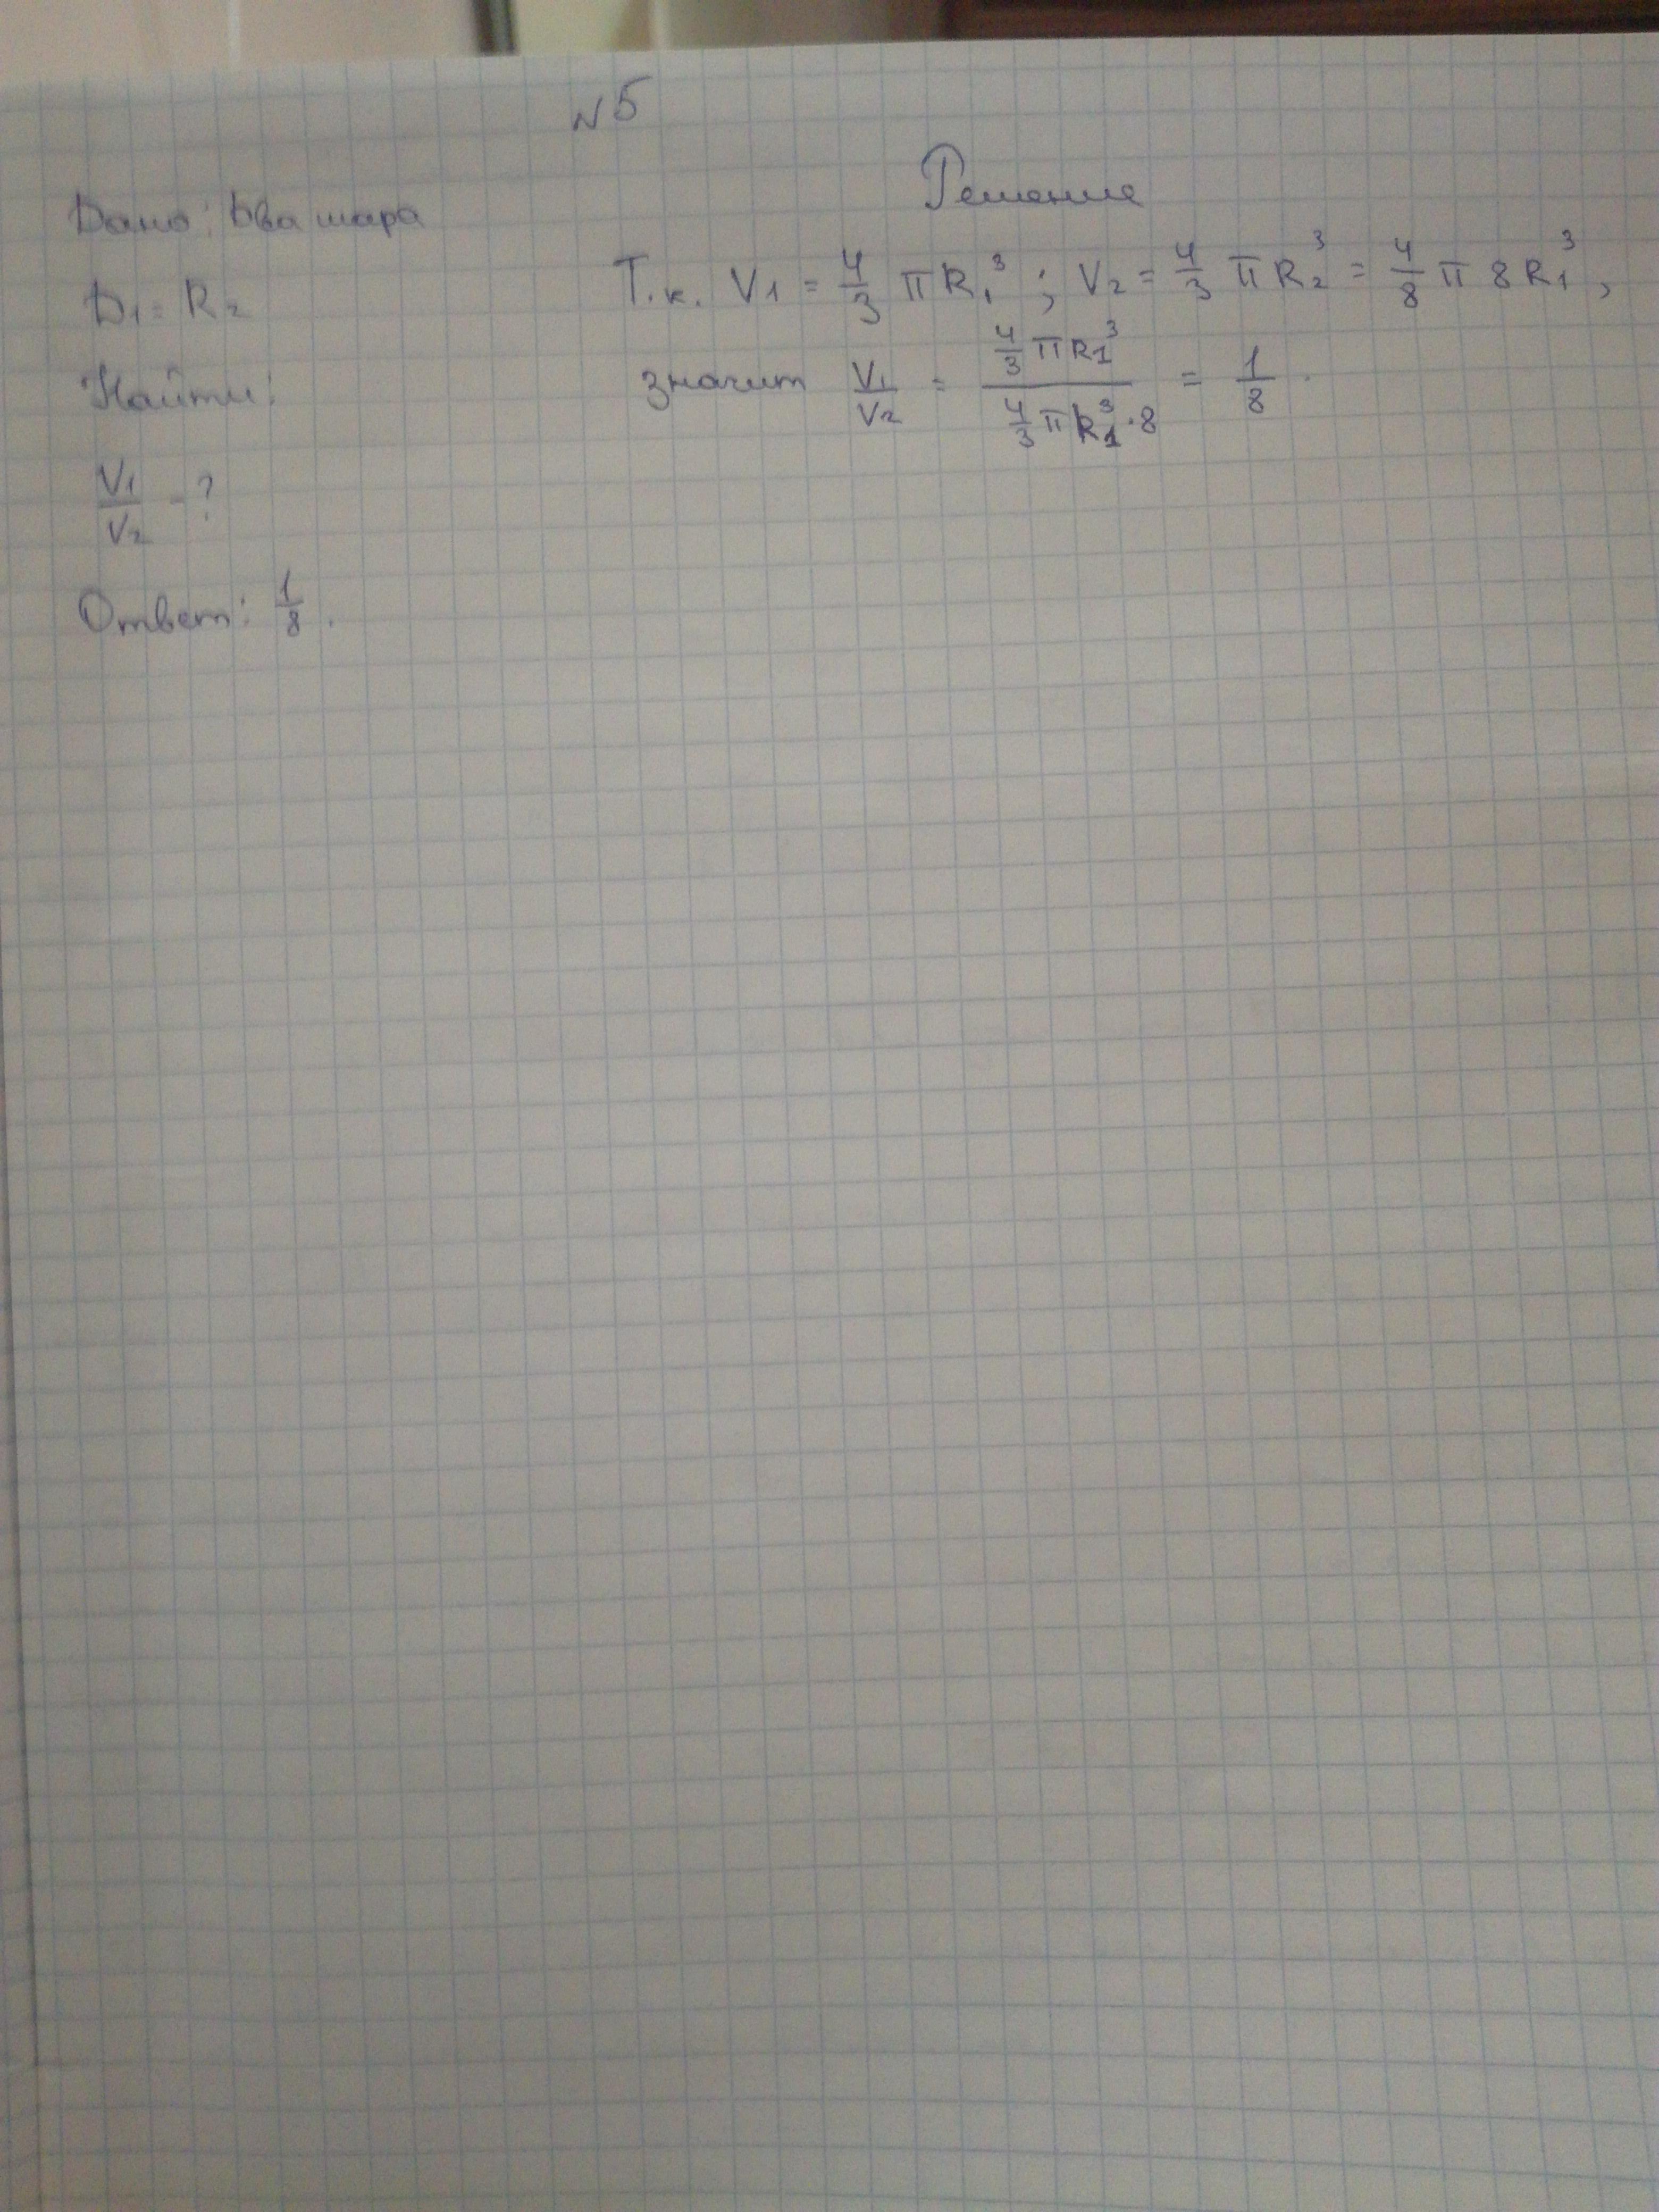 N5
Дано: Два шара
D₁ = R₂
Найти:
V₁/V₂ - ?
Ответ: 1/8.
Решение
Т.к. V₁ = 4/3 π R₁³ ; V₂ = 4/3 π R₂³ = 4/8 π 8 R₁³ ,
значит V₁/V₂ = (4/3 π R₁³)/(4/3 π R₁³ · 8) = 1/8.